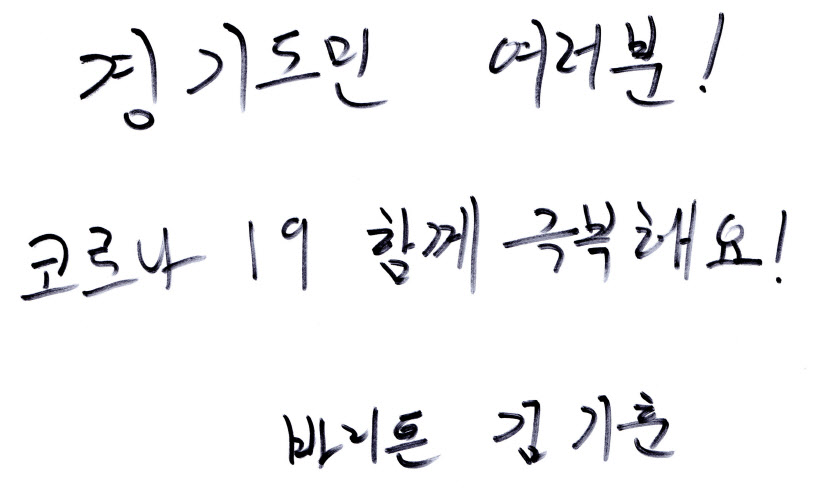 경기도민 여러분!
코로나 19 함께 극복해요!
바리톤 김기훈